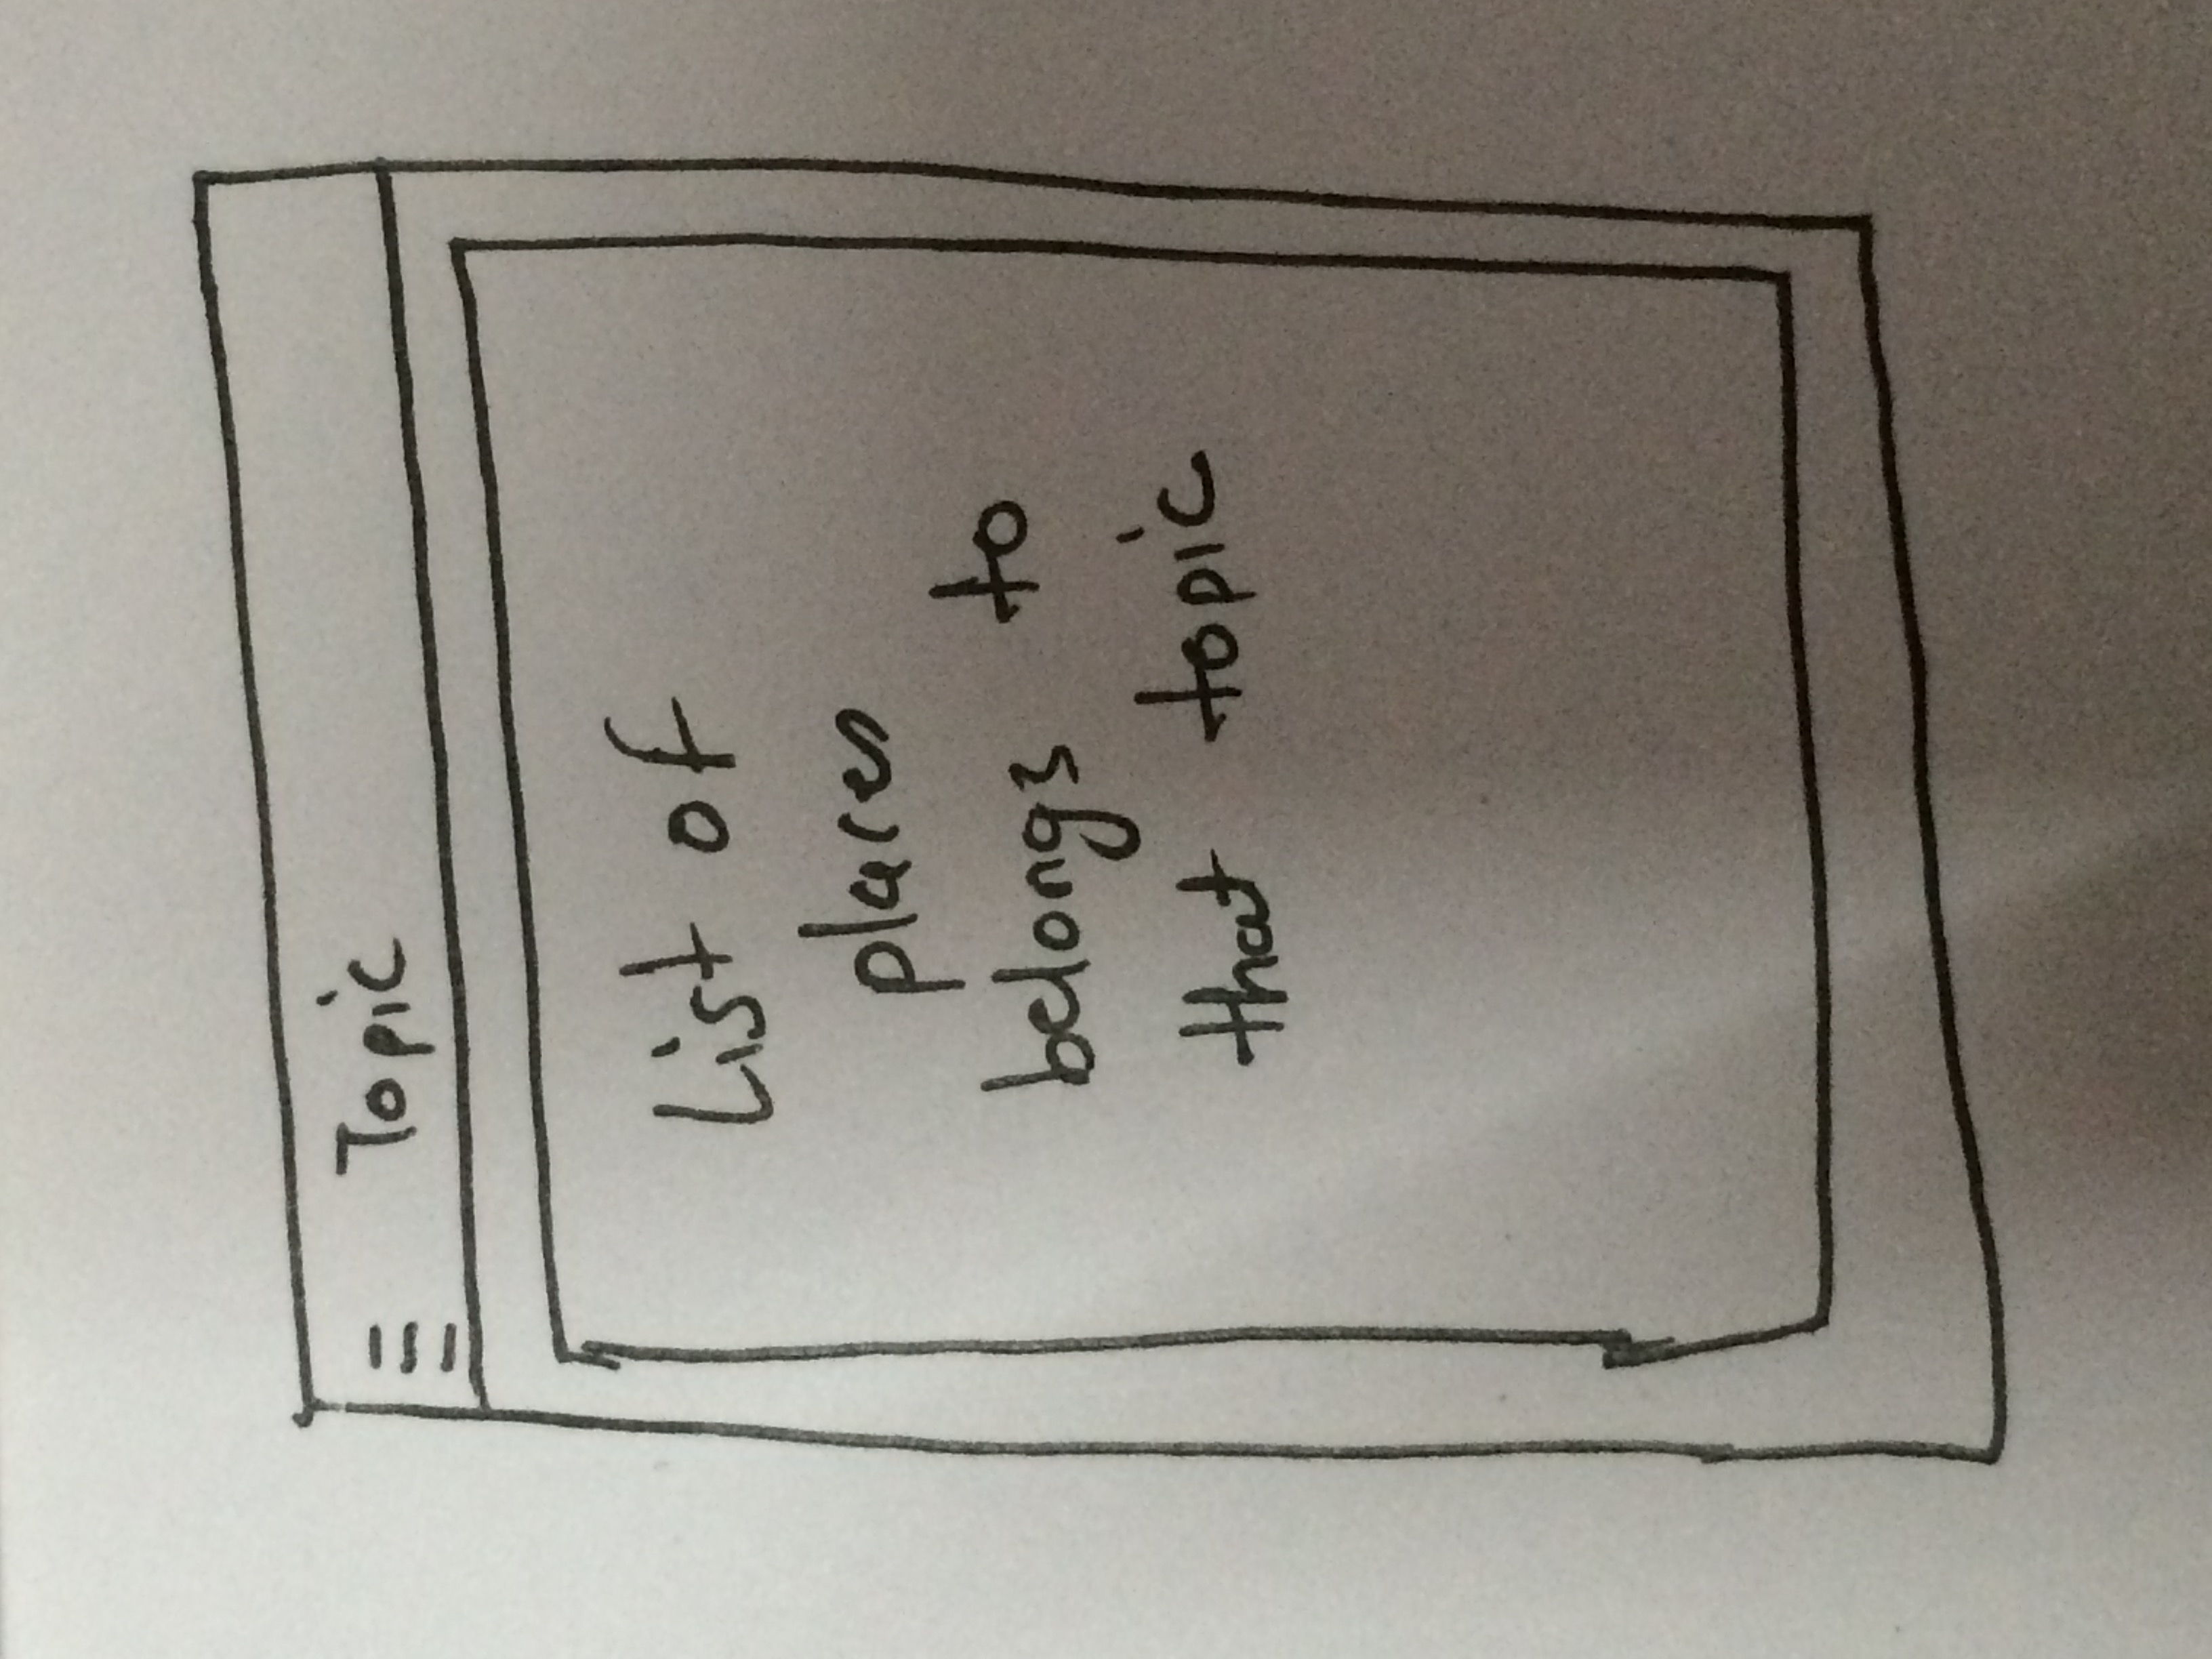 Topic
List of
places
belongs to
that topic